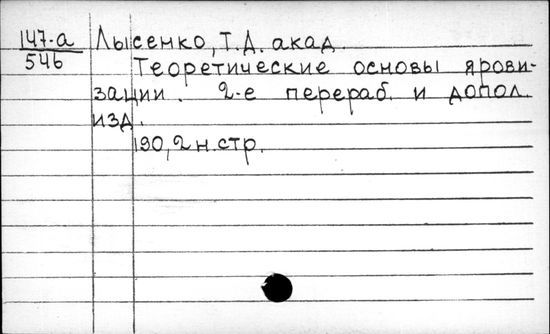 147-а Лысенко, Т.Д. акад.
546
Теоретические основы ярови-
зации. 2-е перераб. и допол.
изд.
190, 2 н.стр.